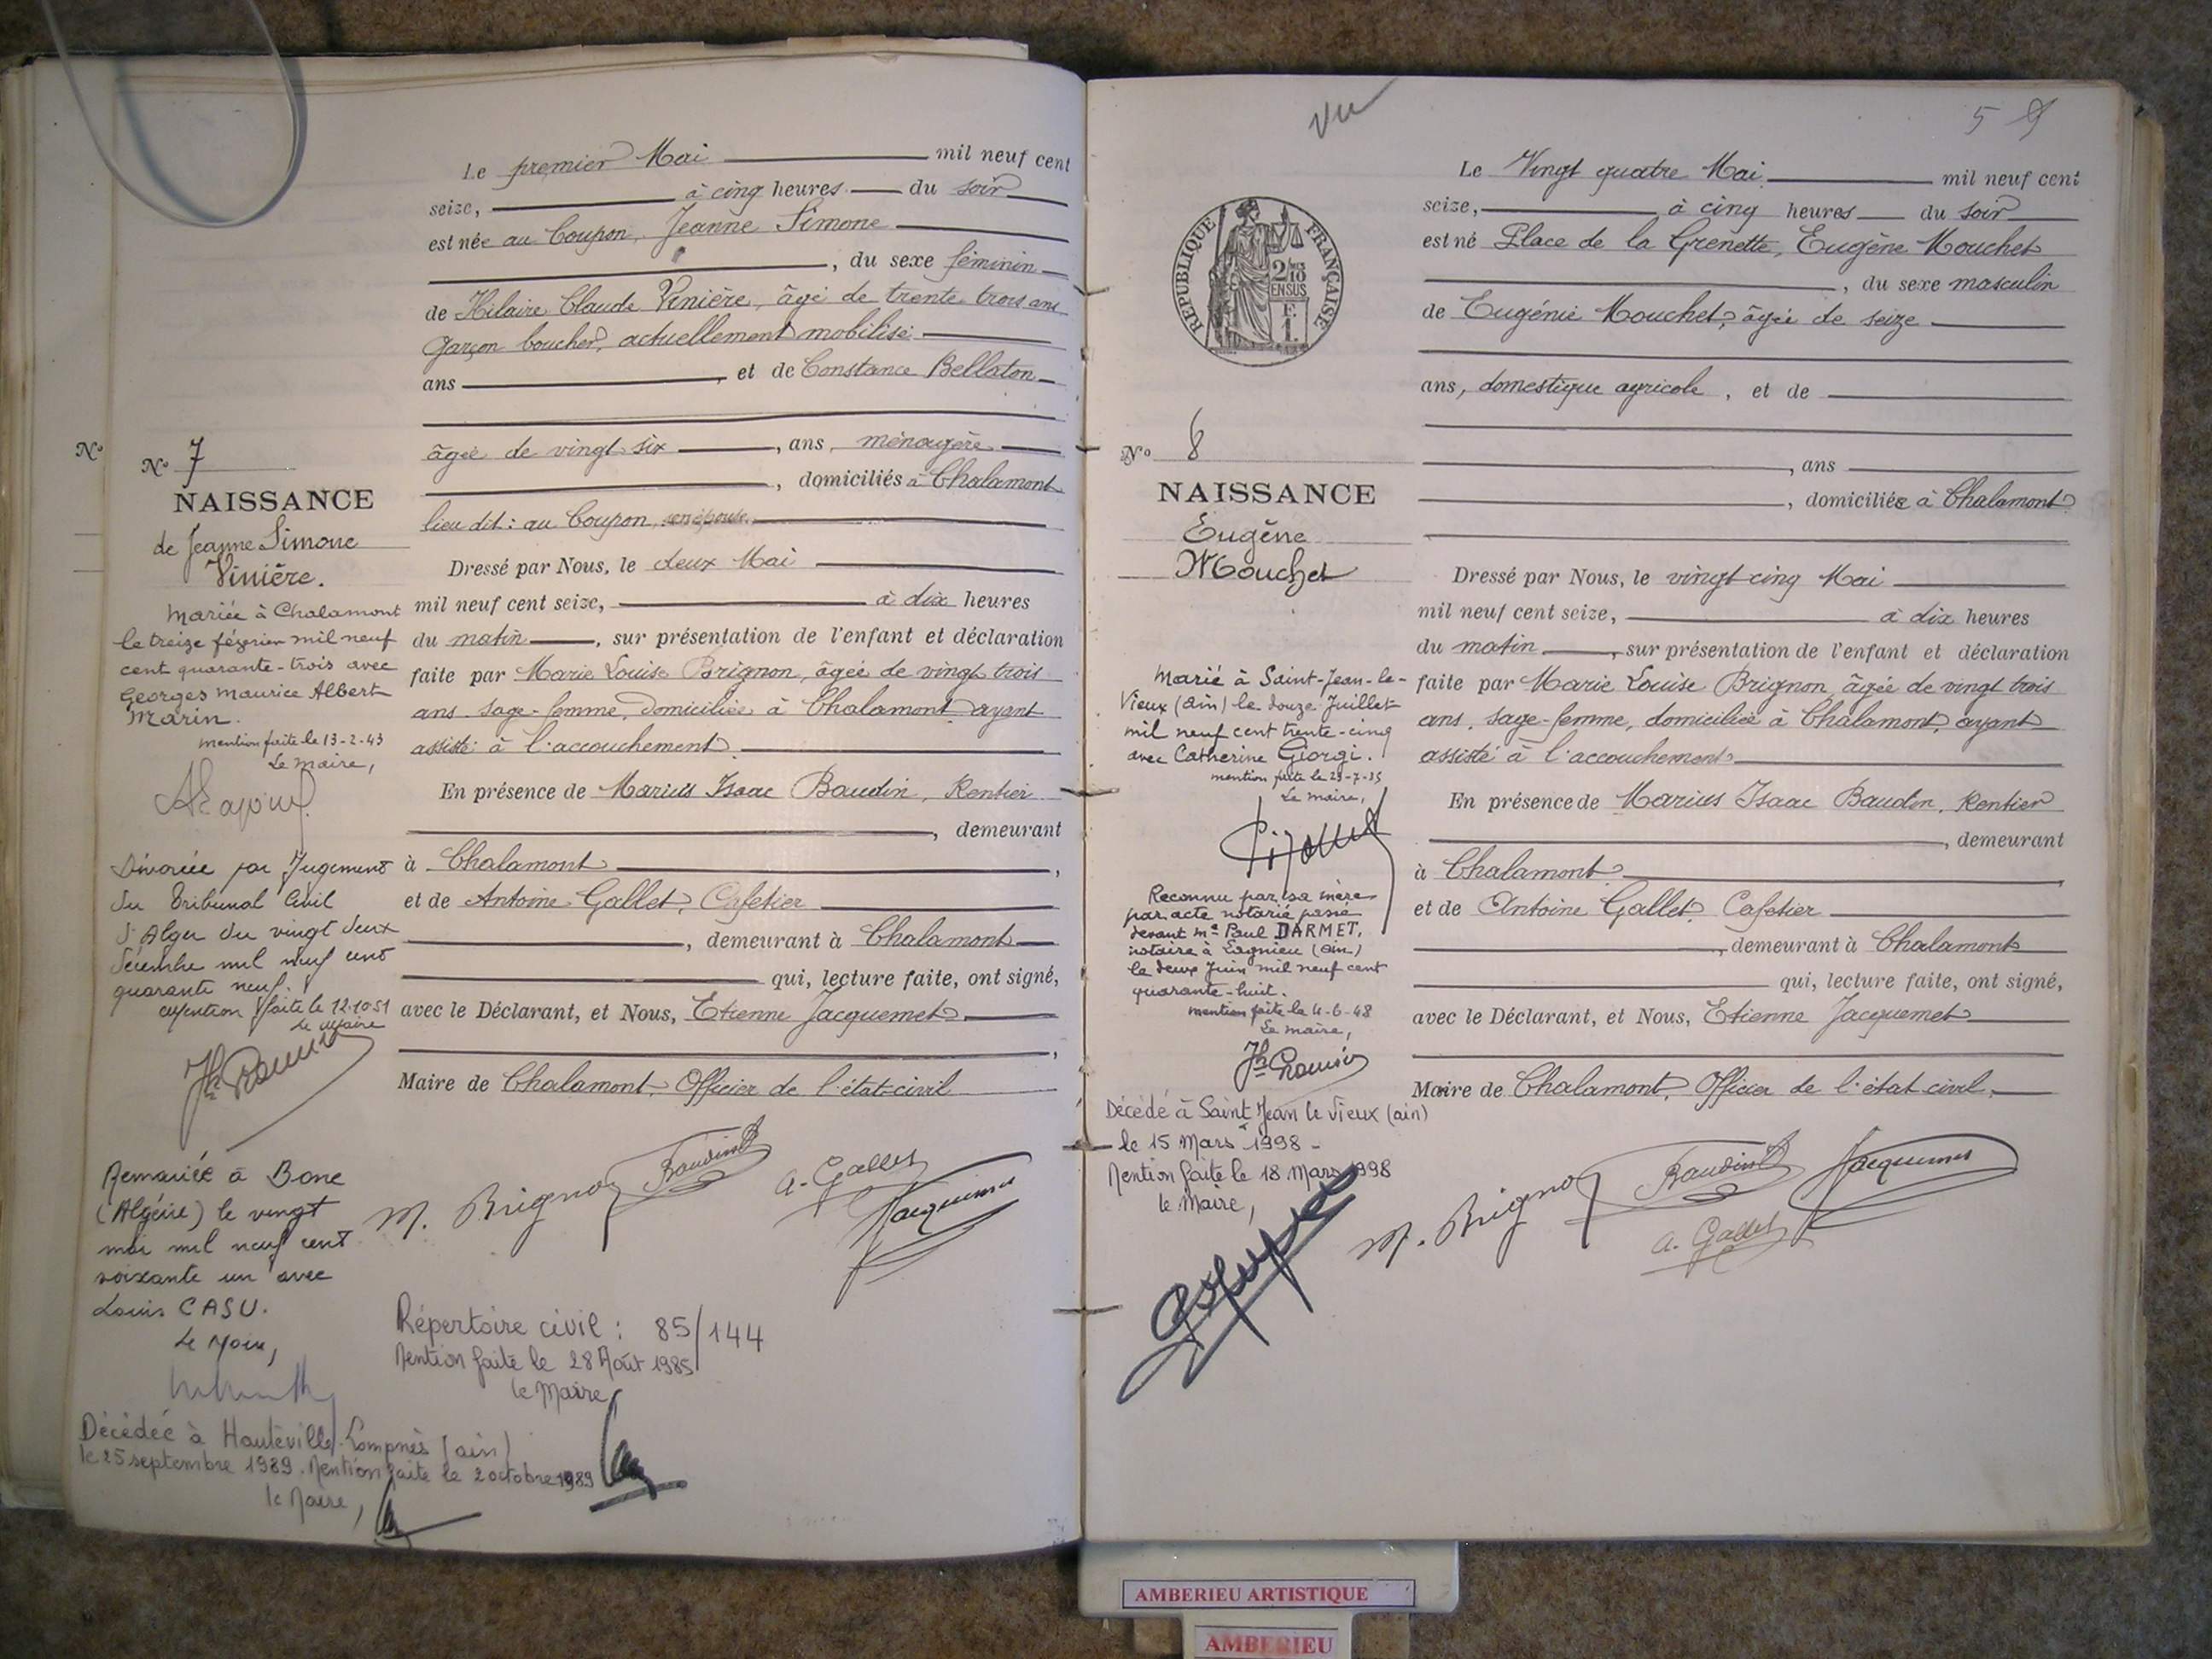 Le premier Mai mil neuf cent
seize, à cinq heures du soir
est née au Coupon, Jeanne Simone
, du sexe féminin
de Hilaire Claude Vinière, âgé de trente trois ans
Garçon boucher, actuellement mobilisé
ans , et de Constance Bellaton
âgée de vingt six , ans, ménagère
, domiciliés à Chalamont
lieu dit : au Coupon, son épouse.
Dressé par Nous, le deux Mai
mil neuf cent seize, à dix heures
du matin , sur présentation de l'enfant et déclaration
faite par Marie Louise Brignon, âgée de vingt trois
ans sage-femme, domiciliée à Chalamont ayant
assisté à l'accouchement
En présence de Marius Isaac Baudin, Rentier
, demeurant
à Chalamont ,
et de Antoine Gallet, Cafetier
, demeurant à Chalamont
qui, lecture faite, ont signé,
avec le Déclarant, et Nous, Etienne Jacquemet
,
Maire de Chalamont, Officier de l'état-civil
M. Brignon Baudin A. Gallet
Jacquemet
Nº
Nº 7
NAISSANCE
de Jeanne Simone
Vinière.
Mariée à Chalamont
le treize février mil neuf
cent quarante-trois avec
Georges Maurice Albert
Marin.
mention faite le 13-2-43
Le Maire,
Divorcée par Jugement
du Tribunal Civil
d'Alger du vingt deux
décembre mil neuf cent
quarante neuf.
Mention faite le 12.10.51
Le Maire
Remariée à Bone
(Algérie) le vingt
mai mil neuf cent
soixante un avec
Louis CASU.
Le Maire,
Répertoire civil : 85/144
Mention faite le 28 Août 1985
le Maire
Décédée à Hauteville-Lompnès (ain)
le 25 septembre 1989. Mention faite le 2 octobre 1989
le Maire,
Vu
5 9
RÉPUBLIQUE FRANÇAISE
2/10
EN SUS
F.
1.
Le Vingt quatre Mai mil neuf cent
seize, à cinq heures du soir
est né Place de la Grenette, Eugène Mouchet
, du sexe masculin
de Eugénie Mouchet, âgée de seize
ans, domestique agricole , et de
, ans
, domiciliée à Chalamont
Dressé par Nous, le vingt-cinq Mai
mil neuf cent seize, à dix heures
du matin , sur présentation de l'enfant et déclaration
faite par Marie Louise Brignon âgée de vingt trois
ans, sage-femme, domiciliée à Chalamont, ayant
assisté à l'accouchement
En présence de Marius Isaac Baudin, Rentier
, demeurant
à Chalamont ,
et de Antoine Gallet, Cafetier
, demeurant à Chalamont
qui, lecture faite, ont signé,
avec le Déclarant, et Nous, Etienne Jacquemet
,
Maire de Chalamont, Officier de l'état civil,
M. Brignon Baudin Jacquemet
A. Gallet
Nº 8
NAISSANCE
Eugène
Mouchet
Marié à Saint-Jean-le-
Vieux (Ain) le douze Juillet
mil neuf cent trente-cinq
avec Catherine Giorgi.
mention faite le 23-7-35
Le Maire,
Reconnu par sa mère
par acte notarié passé
devant Me Paul DARMET,
notaire à Lagnieu (Ain)
le deux Juin mil neuf cent
quarante-huit.
mention faite le 4-6-48
Le Maire,
Décédé à Saint Jean le Vieux (ain)
le 15 Mars 1998 -
Mention faite le 18 Mars 1998
le Maire,
AMBERIEU ARTISTIQUE
AMBERIEU